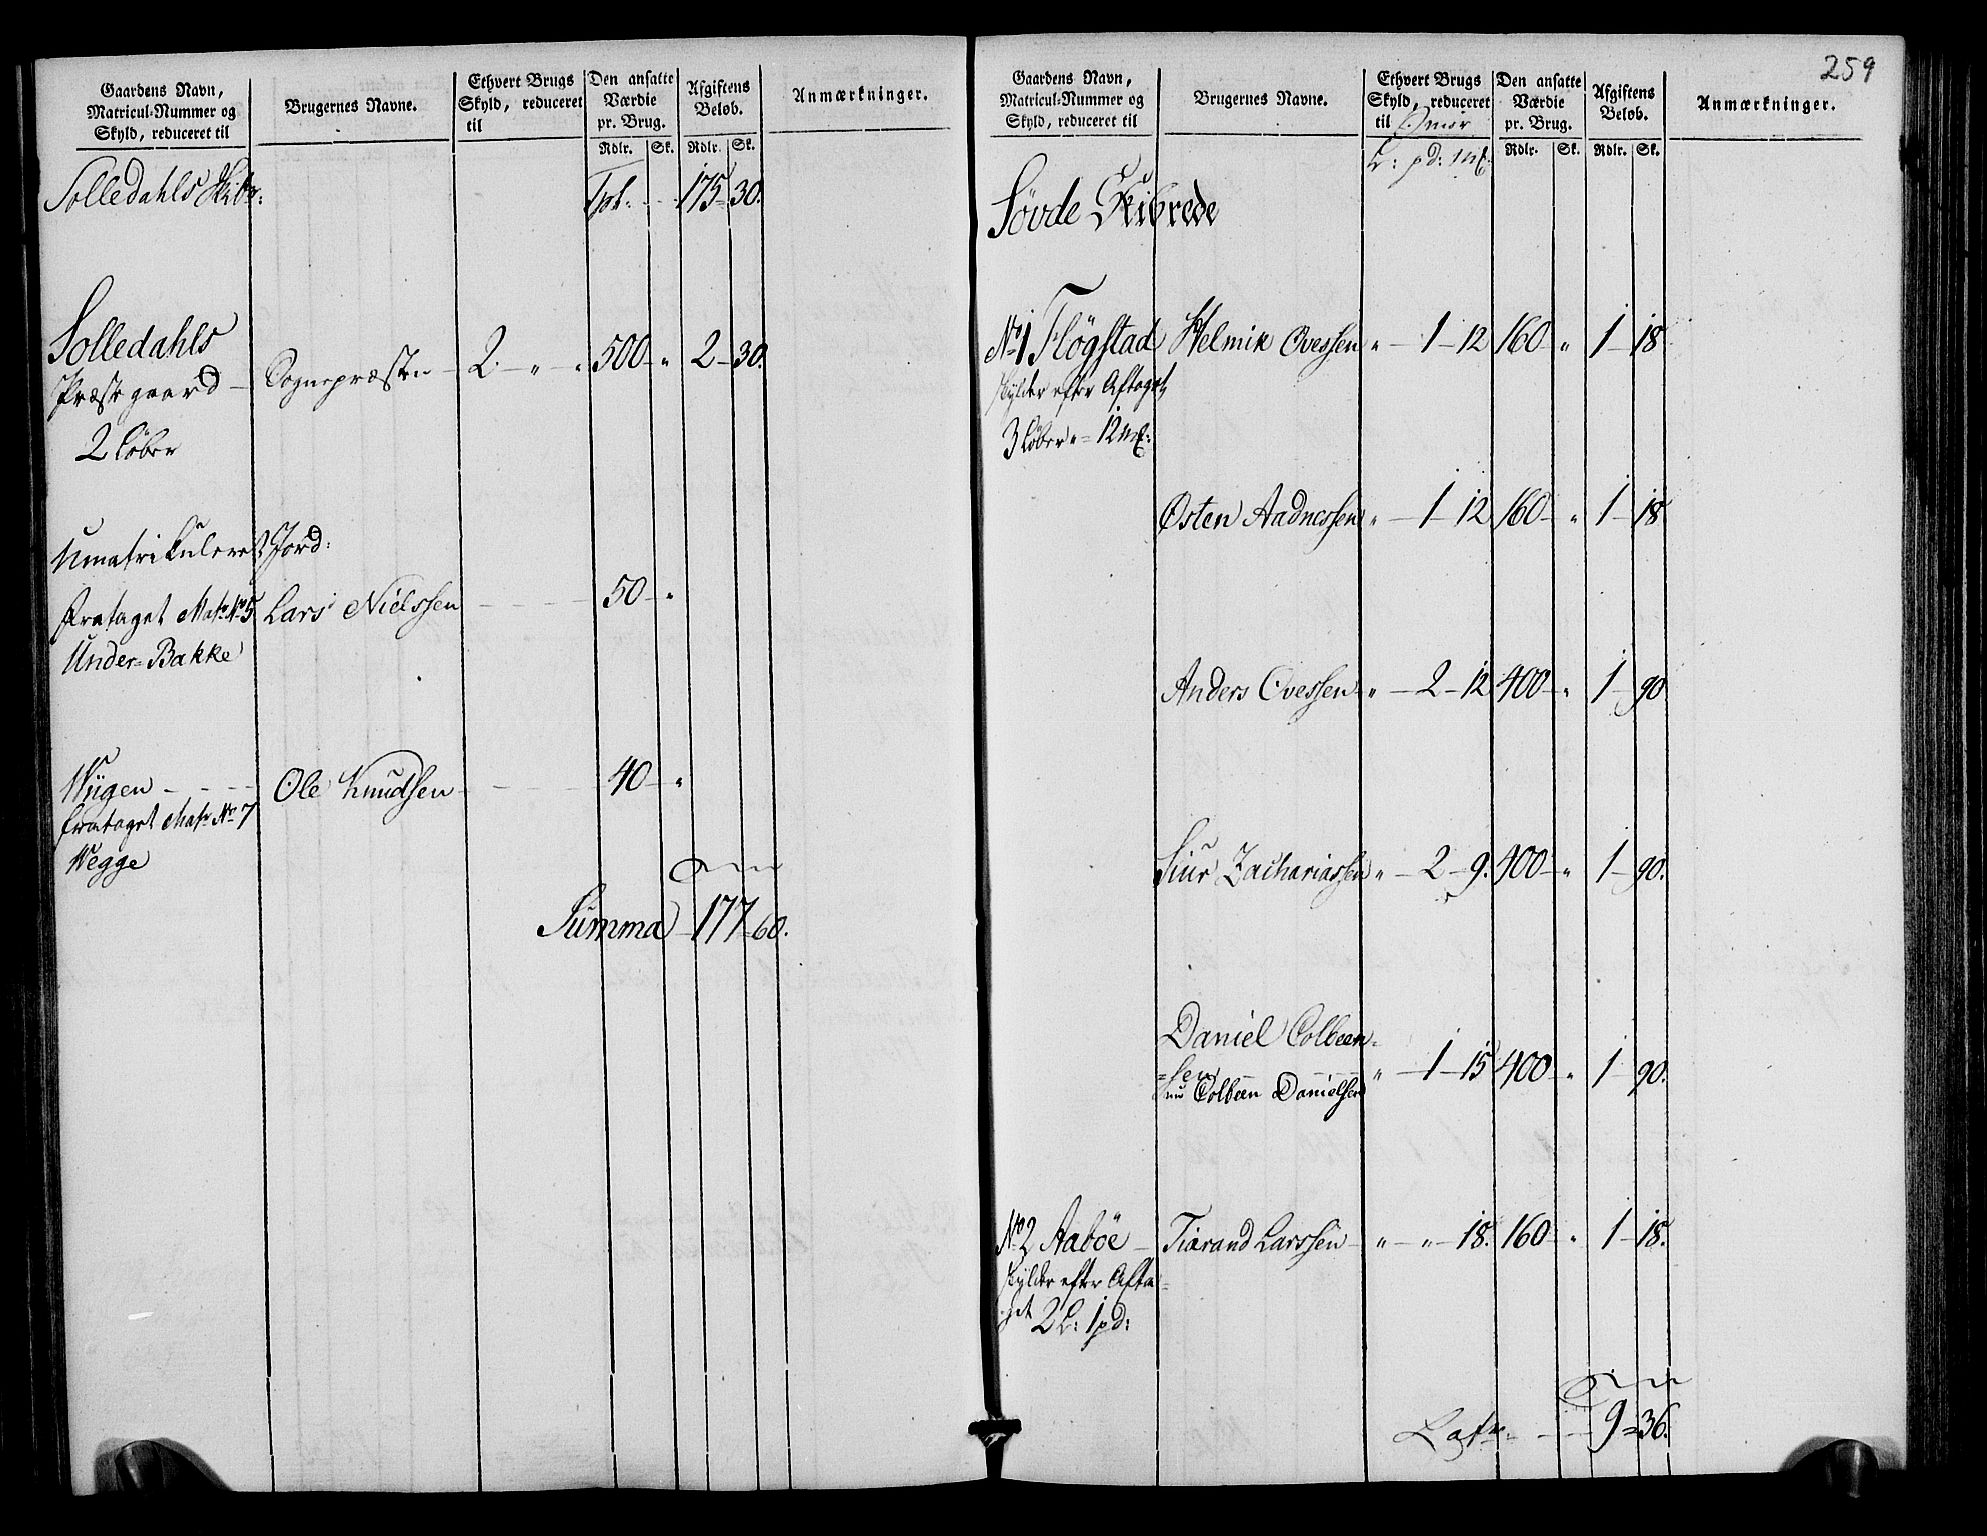 Gaardens Navn,
Matricul-Nummer og
Skyld, reduceret til
Brugernes Navne.
Ethvert Brugs
Skyld, reduceret
til
Den ansatte
Værdie
pr. Brug.
Rdlr. Sk.
Afgiftens
Beløb.
Rdlr. Sk.
Anmærkninger.
Solledahls Skibr: 175 30.
Solledahls
Præstegaard Sognepræsten 2 " " 500 " 2 30.
2 Løber
Umatrikuleret Jord:
frataget Matr: No 5 Lars Nielssen 50 "
Under-Bakke
Wiigen Ole Knudsen 40 "
frataget Matr No 7
Wegge
Summa 177 60.
259
Gaardens Navn,
Matricul-Nummer og
Skyld, reduceret til
Brugernes Navne.
Ethvert Brugs
Skyld, reduceret
til Smør
L: pd: Mk.
Den ansatte
Værdie
pr. Brug.
Rdlr. Sk.
Afgiftens
Beløb.
Rdlr. Sk.
Anmærkninger.
Søvde Skibrede
No 1 Fløgstad Helmik Ovessen " 1 12 160 " 1 18
skylder efter Aftaget
3 Løber " 12 Mk:
Østen Aadnessen " 1 12 160 " 1 18
Anders Ovessen " 2 12 400 " 1 90
Siur Zachariassen " 2 9. 400 " 1 90.
Daniel Colbeen=
=sen " 1 15 400 " 1 90.
nu Colbeen Danielsen
No 2 Aabøe Tiørand Larssen " " 18. 160 " 1 18.
skylder efter Afta=
get 2 L: 1 pd:
Latr 9 = 36.